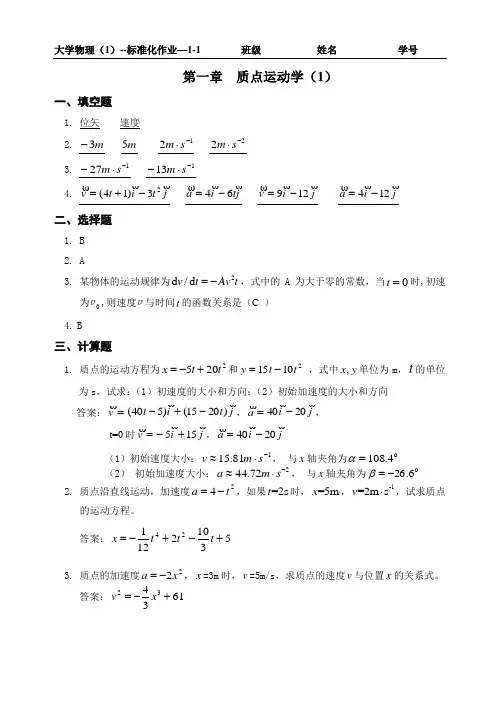 大学物理（1）--标准化作业—1-1 班级 姓名 学号
第一章 质点运动学（1）
一、填空题
1. 位矢 速度
2. −3m 5m 2m·s⁻¹ 2m·s⁻²
3. −27m·s⁻¹ −13m·s⁻¹
4. v=(4t+1)i−3t²j a=4i−6tj v=9i−12j a=4i−12j
二、选择题
1. B
2. A
3. 某物体的运动规律为dv/dt=−Av²t，式中的 A 为大于零的常数，当t=0时,初速
为v₀,则速度v与时间t的函数关系是（C ）
4. B
三、计算题
1. 质点的运动方程为x=−5t+20t²和y=15t−10t² ，式中x,y单位为 m，t的单位
为 s，试求：（1）初速度的大小和方向；（2）初始加速度的大小和方向
答案：v=(40t−5)i+(15−20t)j，a=40i−20j，
t=0 时v=−5i+15j，a=40i−20j
（1）初始速度大小：v≈15.81m·s⁻¹， 与x轴夹角为α=108.4⁰
（2） 初始加速度大小：a≈44.72m·s⁻²， 与x轴夹角为β=−26.6⁰
2. 质点沿直线运动，加速度a=4−t²，如果t=2s 时，x=5m，v=2m·s⁻¹，试求质点
的运动方程。
答案：x=−1/12 t⁴+2t²−10/3 t+5
3. 质点的加速度a=−2x²，x=3m 时，v=5m/s，求质点的速度v与位置x的关系式。
答案：v²=−4/3 x³+61